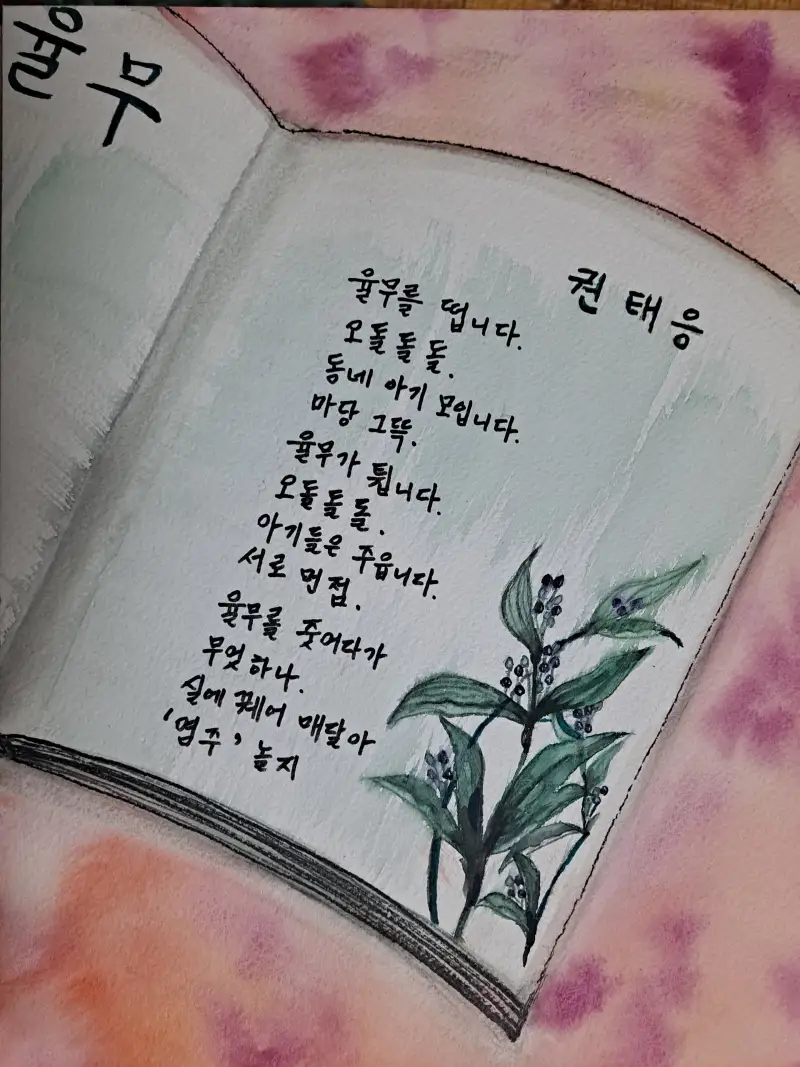 율무
권태응
율무를 떱니다.
오돌돌돌.
동네 아기 모입니다.
마당 그뜩.
율무가 튑니다.
오돌돌돌.
아기들은 주웁니다.
서로 먼접.
율무를 줏어다가
무엇하나.
실에 꿰어 매달아
'염주' 놀지